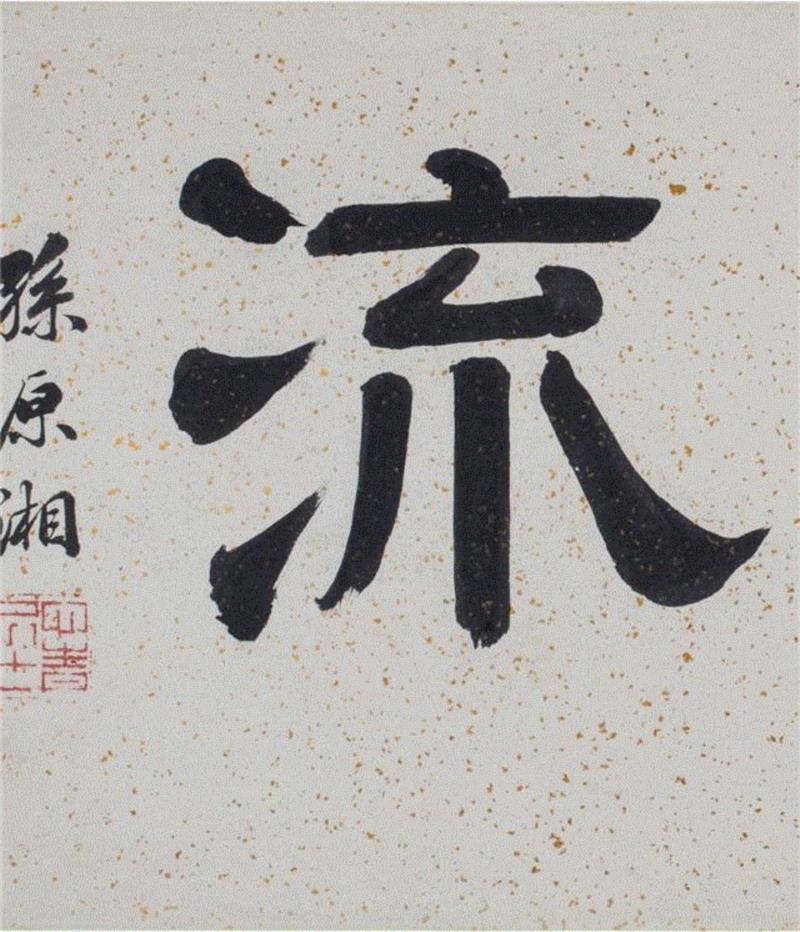 流
孫原湘